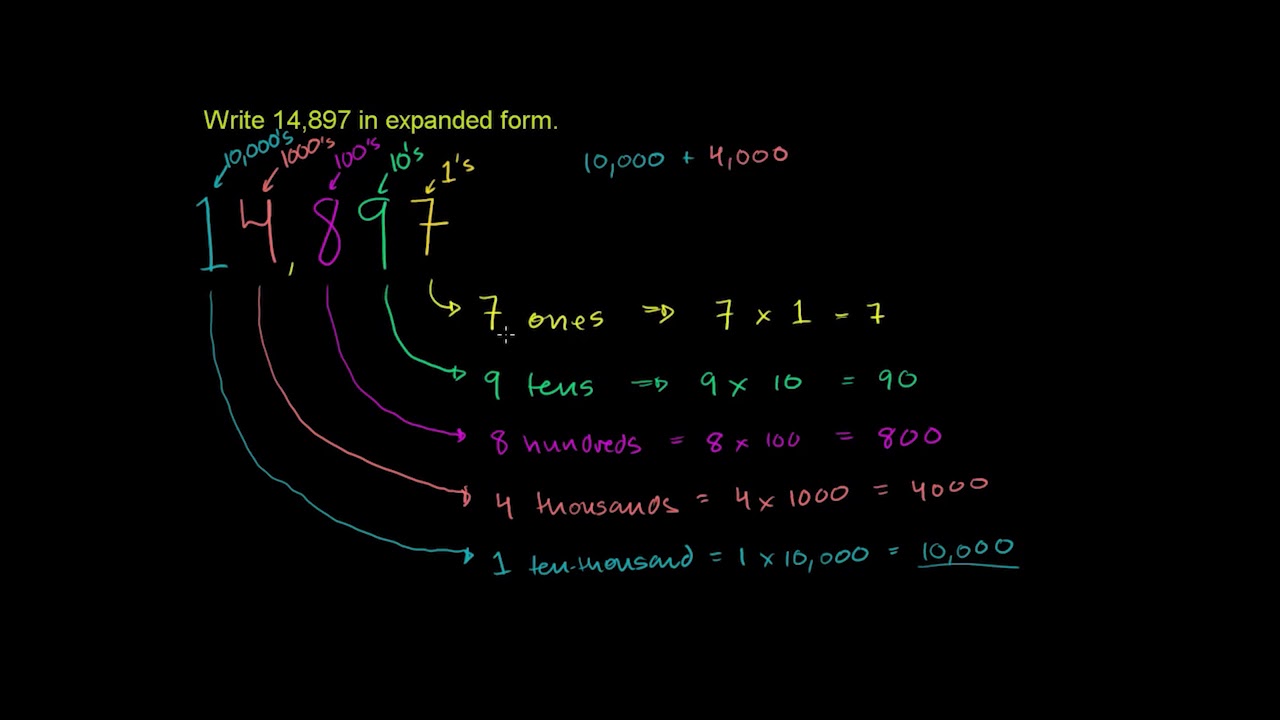 Write 14,897 in expanded form.
10,000's 1000's 100's 10's 1's
10,000 + 4,000
14,897
7 ones ⇒ 7 x 1 = 7
9 tens ⇒ 9 x 10 = 90
8 hundreds = 8 x 100 = 800
4 thousands = 4 x 1000 = 4000
1 ten-thousand = 1 x 10,000 = 10,000